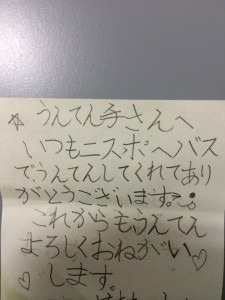 ☆うんてん手さんへ
いつもニスポへバス
でうんてんしてくれてあり
がとうございます。
これからもうんてん
よろしくおねがい♡
♡します。